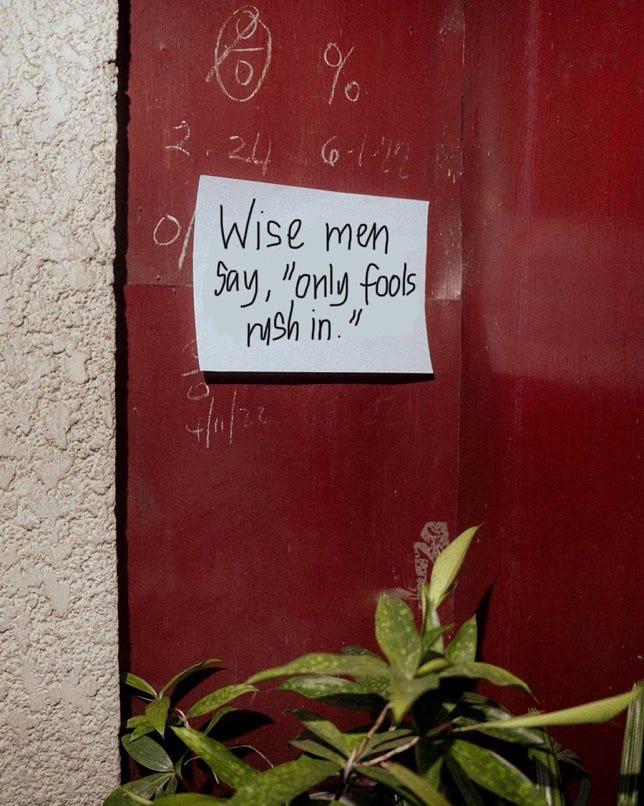 %
%
2 - 24 6-1-22
0/
Wise men
say, "only fools
rush in."
4/11/22